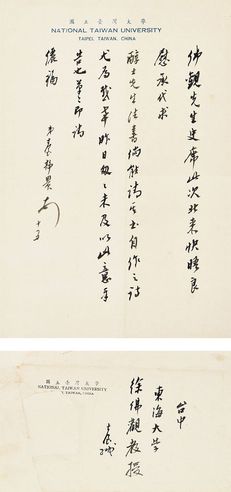 國立臺灣大學
NATIONAL TAIWAN UNIVERSITY
TAIPEI, TAIWAN, CHINA
佛觀先生史席此次北來快晤良
慰承代求
醇士先生法書倘能請其書自作之詩
尤為感幸昨日匆匆未及以此意奉
告也專此即請
儷福
弟臺靜農
十五
國立臺灣大學
NATIONAL TAIWAN UNIVERSITY
TAIPEI, TAIWAN, CHINA
台中
東海大學
徐佛觀教授